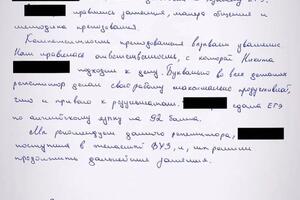 нравились занятия, манера общения и
методика преподавания.
Компетентность преподавания вызывает уважение.
Нам нравилась ответственность, с которой Никита
подходит к делу. Буквально во всех деталях
репетитор делал свою работу максимально продуктивной,
что и привело к результатам. сдала ЕГЭ
по английскому языку на 92 балла.
Мы рекомендуем данного репетитора,
поступила в ВУЗ и, мы решили
продолжить дальнейшие занятия.